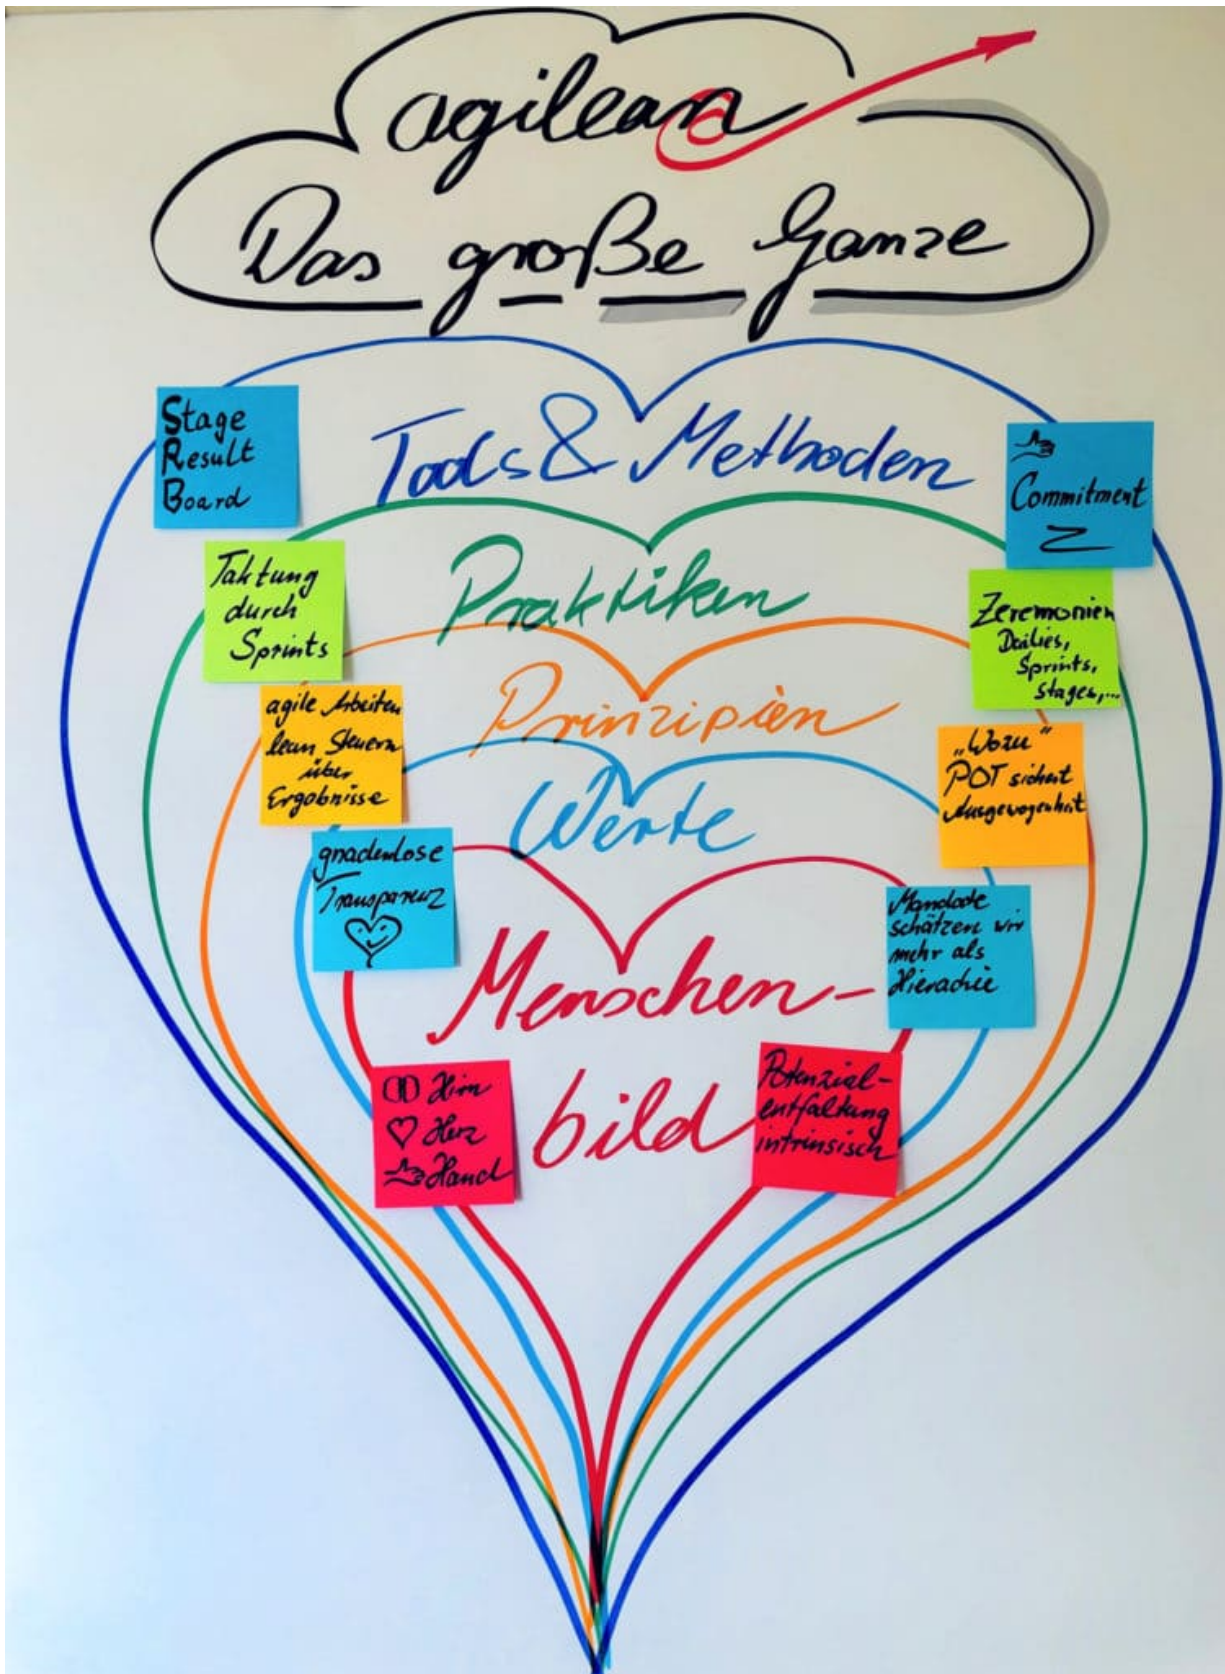 agilean
Das große Ganze
Stage
Result
Board
Tools & Methoden
Commitment
Taktung
durch
Sprints
Praktiken
Zeremonien
Dailies,
Sprints,
Stages,...
agile Arbeiten
lean Steuern
über
Ergebnisse
Prinzipien
„Wozu"
POT sichert
Ausgewogenheit
gnadenlose
Transparenz
Werte
Mandate
schätzen wir
mehr als
Hierachie
Menschen-
bild
Hirn
Herz
Hand
Potenzial-
entfaltung
intrinsisch